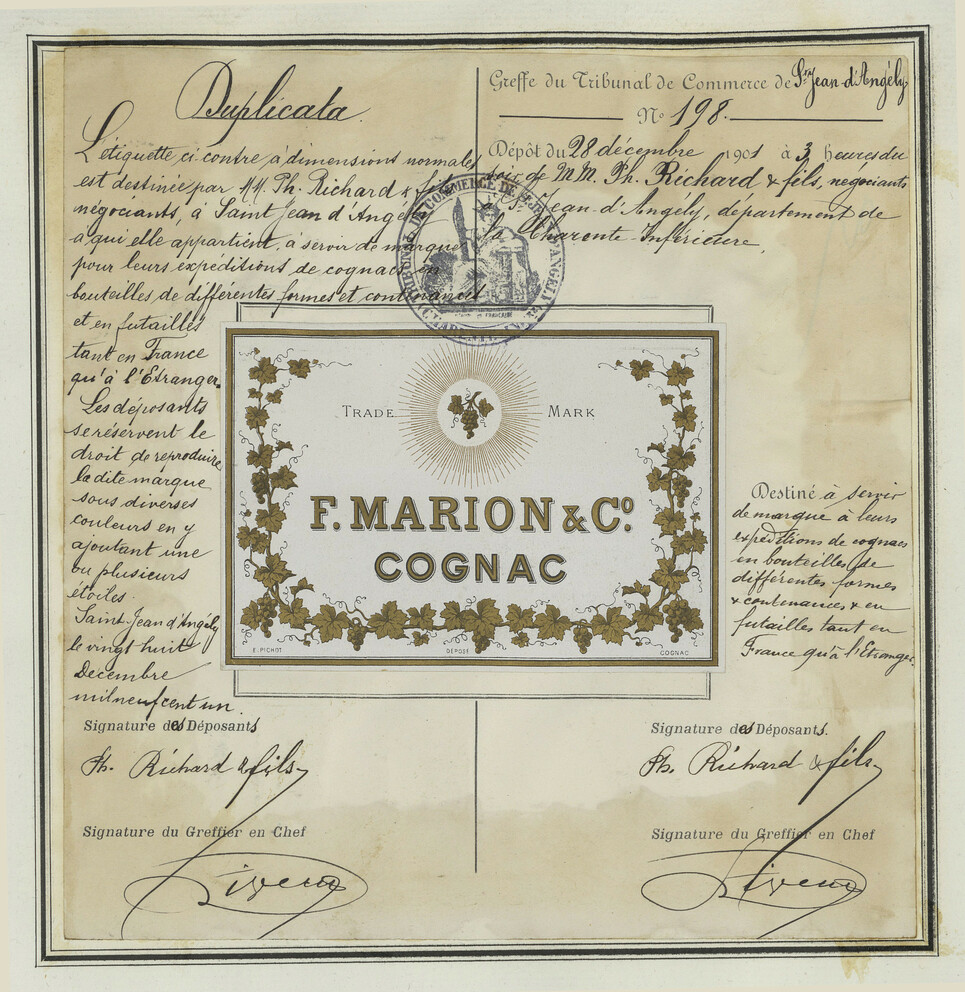 Duplicata.
L'étiquette ci contre à dimensions normales
est destinée par MM. Ph. Richard & fils
négociants, à Saint Jean d'Angély
à qui elle appartient, à servir de marque
pour leurs expéditions de cognacs en
bouteilles de différentes formes et contenances
et en futailles
tant en France
qu'à l'Etranger.
Les déposants
se réservent le
droit de reproduire
la dite marque
sous diverses
couleurs en y
ajoutant une
ou plusieurs
étoiles.
Saint-Jean d'Angély
le vingt huit
Décembre
mil neuf cent un.
Signature des Déposants
Ph. Richard & fils
Signature du Greffier en Chef
Greffe du Tribunal de Commerce de St Jean-d'Angély
No 198.
Dépôt du 28 décembre 1901 à 3 heures du
soir de MM. Ph. Richard & fils, négociants
à St Jean-d'Angély, département de
la Charente-Inférieure,
TRADE MARK
F. MARION & Co.
COGNAC
E. PICHOT DÉPOSÉ COGNAC
Destiné à servir
de marque à leurs
expéditions de cognacs
en bouteilles de
différentes formes
& contenances & en
futailles tant en
France qu'à l'Etranger.
Signature des Déposants.
Ph. Richard & fils
Signature du Greffier en Chef